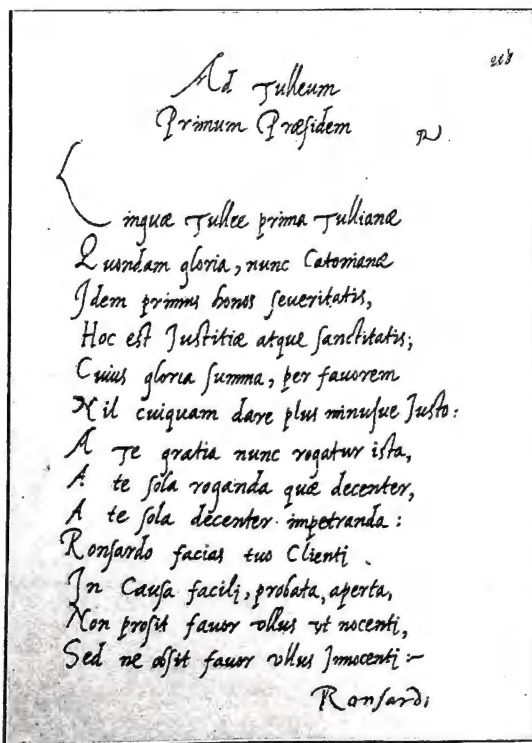 218
Ad Tulleum
Primum Præsidem
Linguæ Tullee prima Tullianæ
Quondam gloria, nunc Catonianæ
Idem primus honos seueritatis,
Hoc est Justitiæ atque sanctitatis;
Cuius gloria summa, per fauorem
Nil cuiquam dare plus minusue Justo:
A Te gratia nunc rogatur ista,
A te sola roganda quæ decenter,
A te sola decenter impetranda:
Ronsardo facias tuo Clienti.
In Causa facili, probata, aperta,
Non prosit fauor vllus vt nocenti,
Sed ne obsit fauor vllus Innocenti:~
Ronsardi